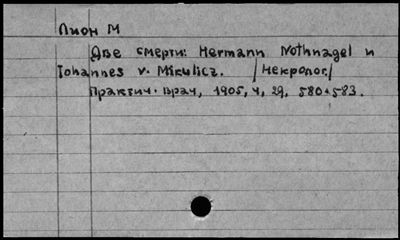 Лион М
Две смерти: Hermann Nothnagel и
Iohannes v. Mikulicz. /Некролог./
Практич. врач, 1905, 4, 29, 580-583.